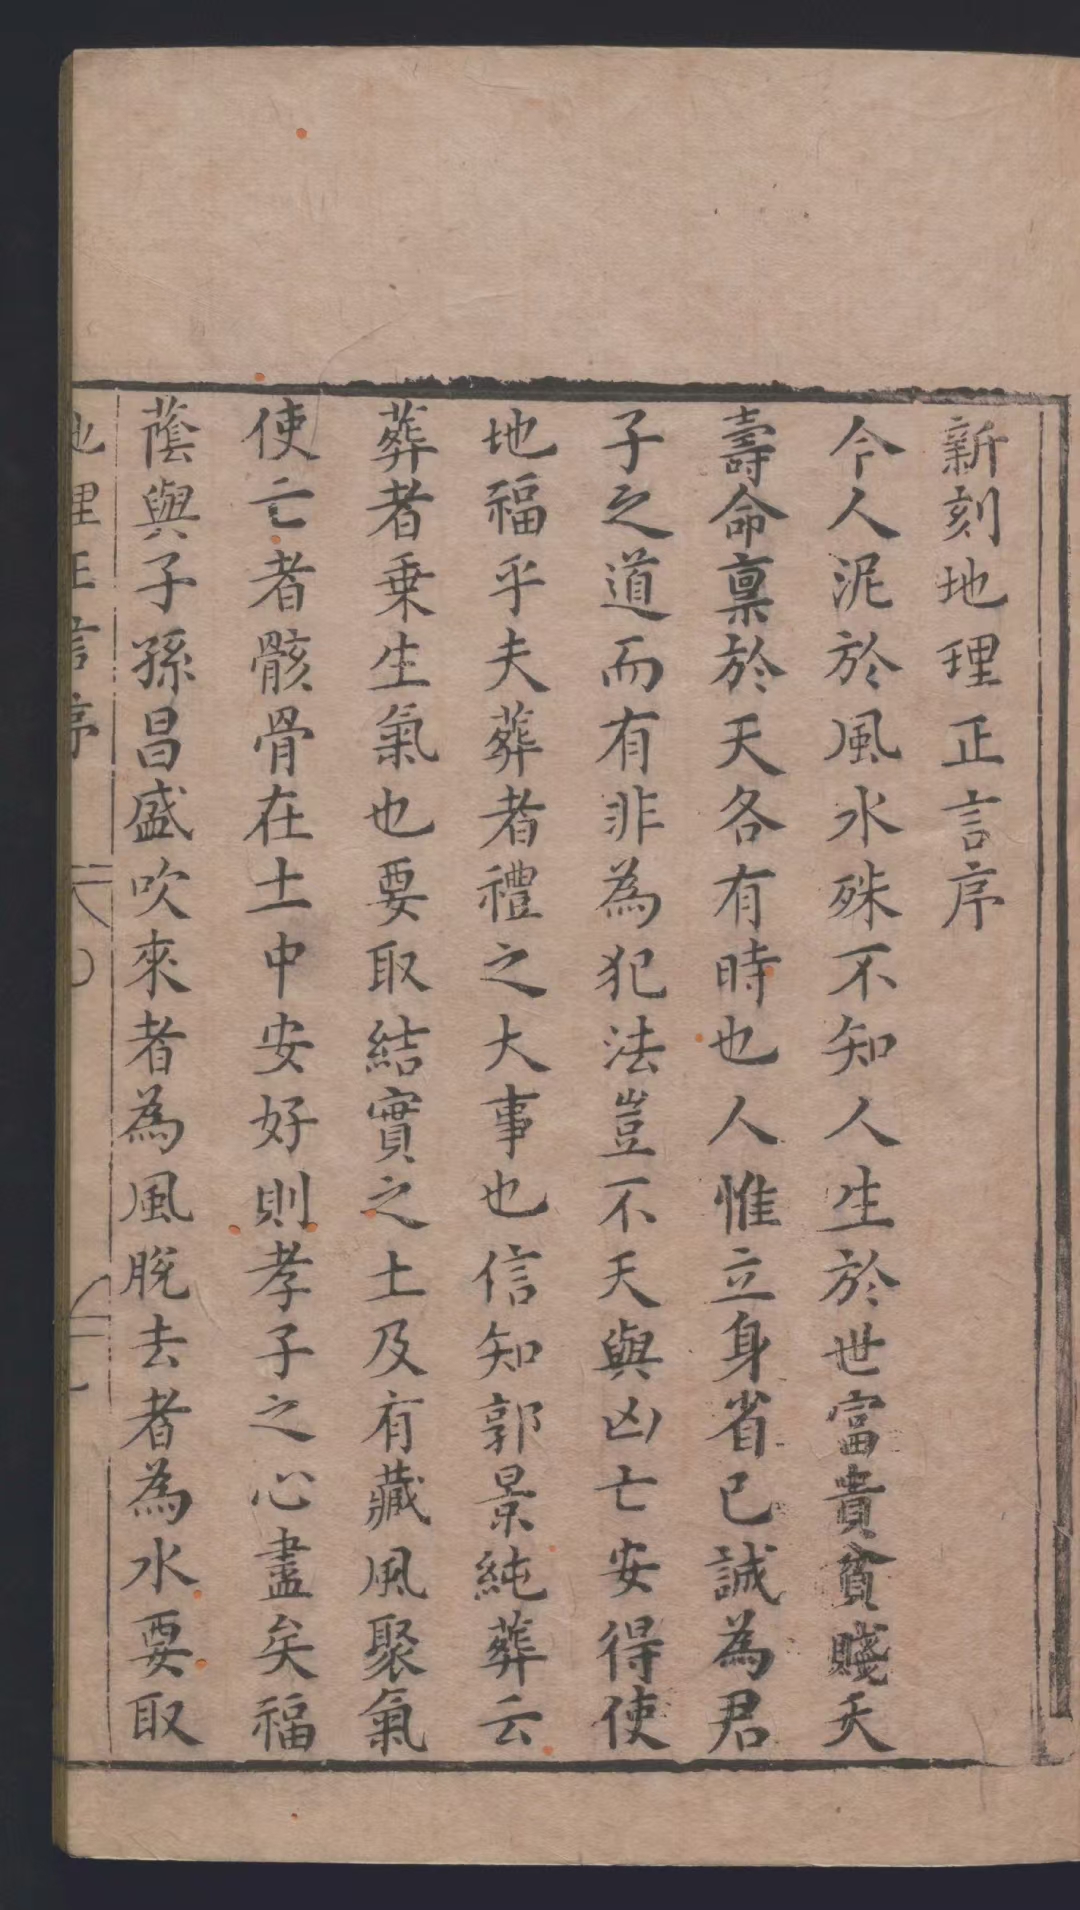 新刻地理正言序
今人泥於風水殊不知人生於世富貴貧賤夭
壽命稟於天各有時也人惟立身省已誠為君
子之道而有非為犯法豈不天與凶亡安得使
地福乎夫葬者禮之大事也信知郭景純葬云
葬者乗生氣也要取結實之土及有藏風聚氣
使亡者骸骨在土中安好則孝子之心盡矣福
蔭與子孫昌盛吹來者為風脫去者為水要取
地理正言序